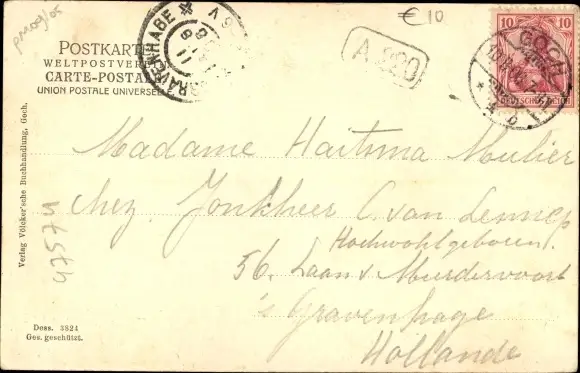 € 10
POSTKARTE
WELTPOSTVEREIN
CARTE-POSTALE
UNION POSTALE UNIVERSELLE
'S GRAVENHAGE
10 10
DEUTSCHES REICH
GOCH
* b
Madame Haitsma Mulier
chez Jonkheer C. van Lennep
Hochwohlgeboren.
56. Laan v Meerdervoort
's Gravenhage
Hollande
Verlag Völcker'sche Buchhandlung, Goch.
47574
Dess. 3824
Ges. geschützt.